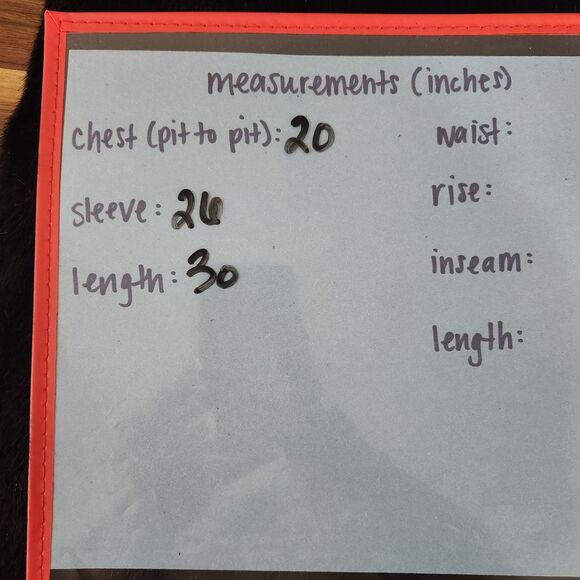 measurements (inches)
chest (pit to pit): 20
sleeve: 26
length: 30
waist:
rise:
inseam:
length: